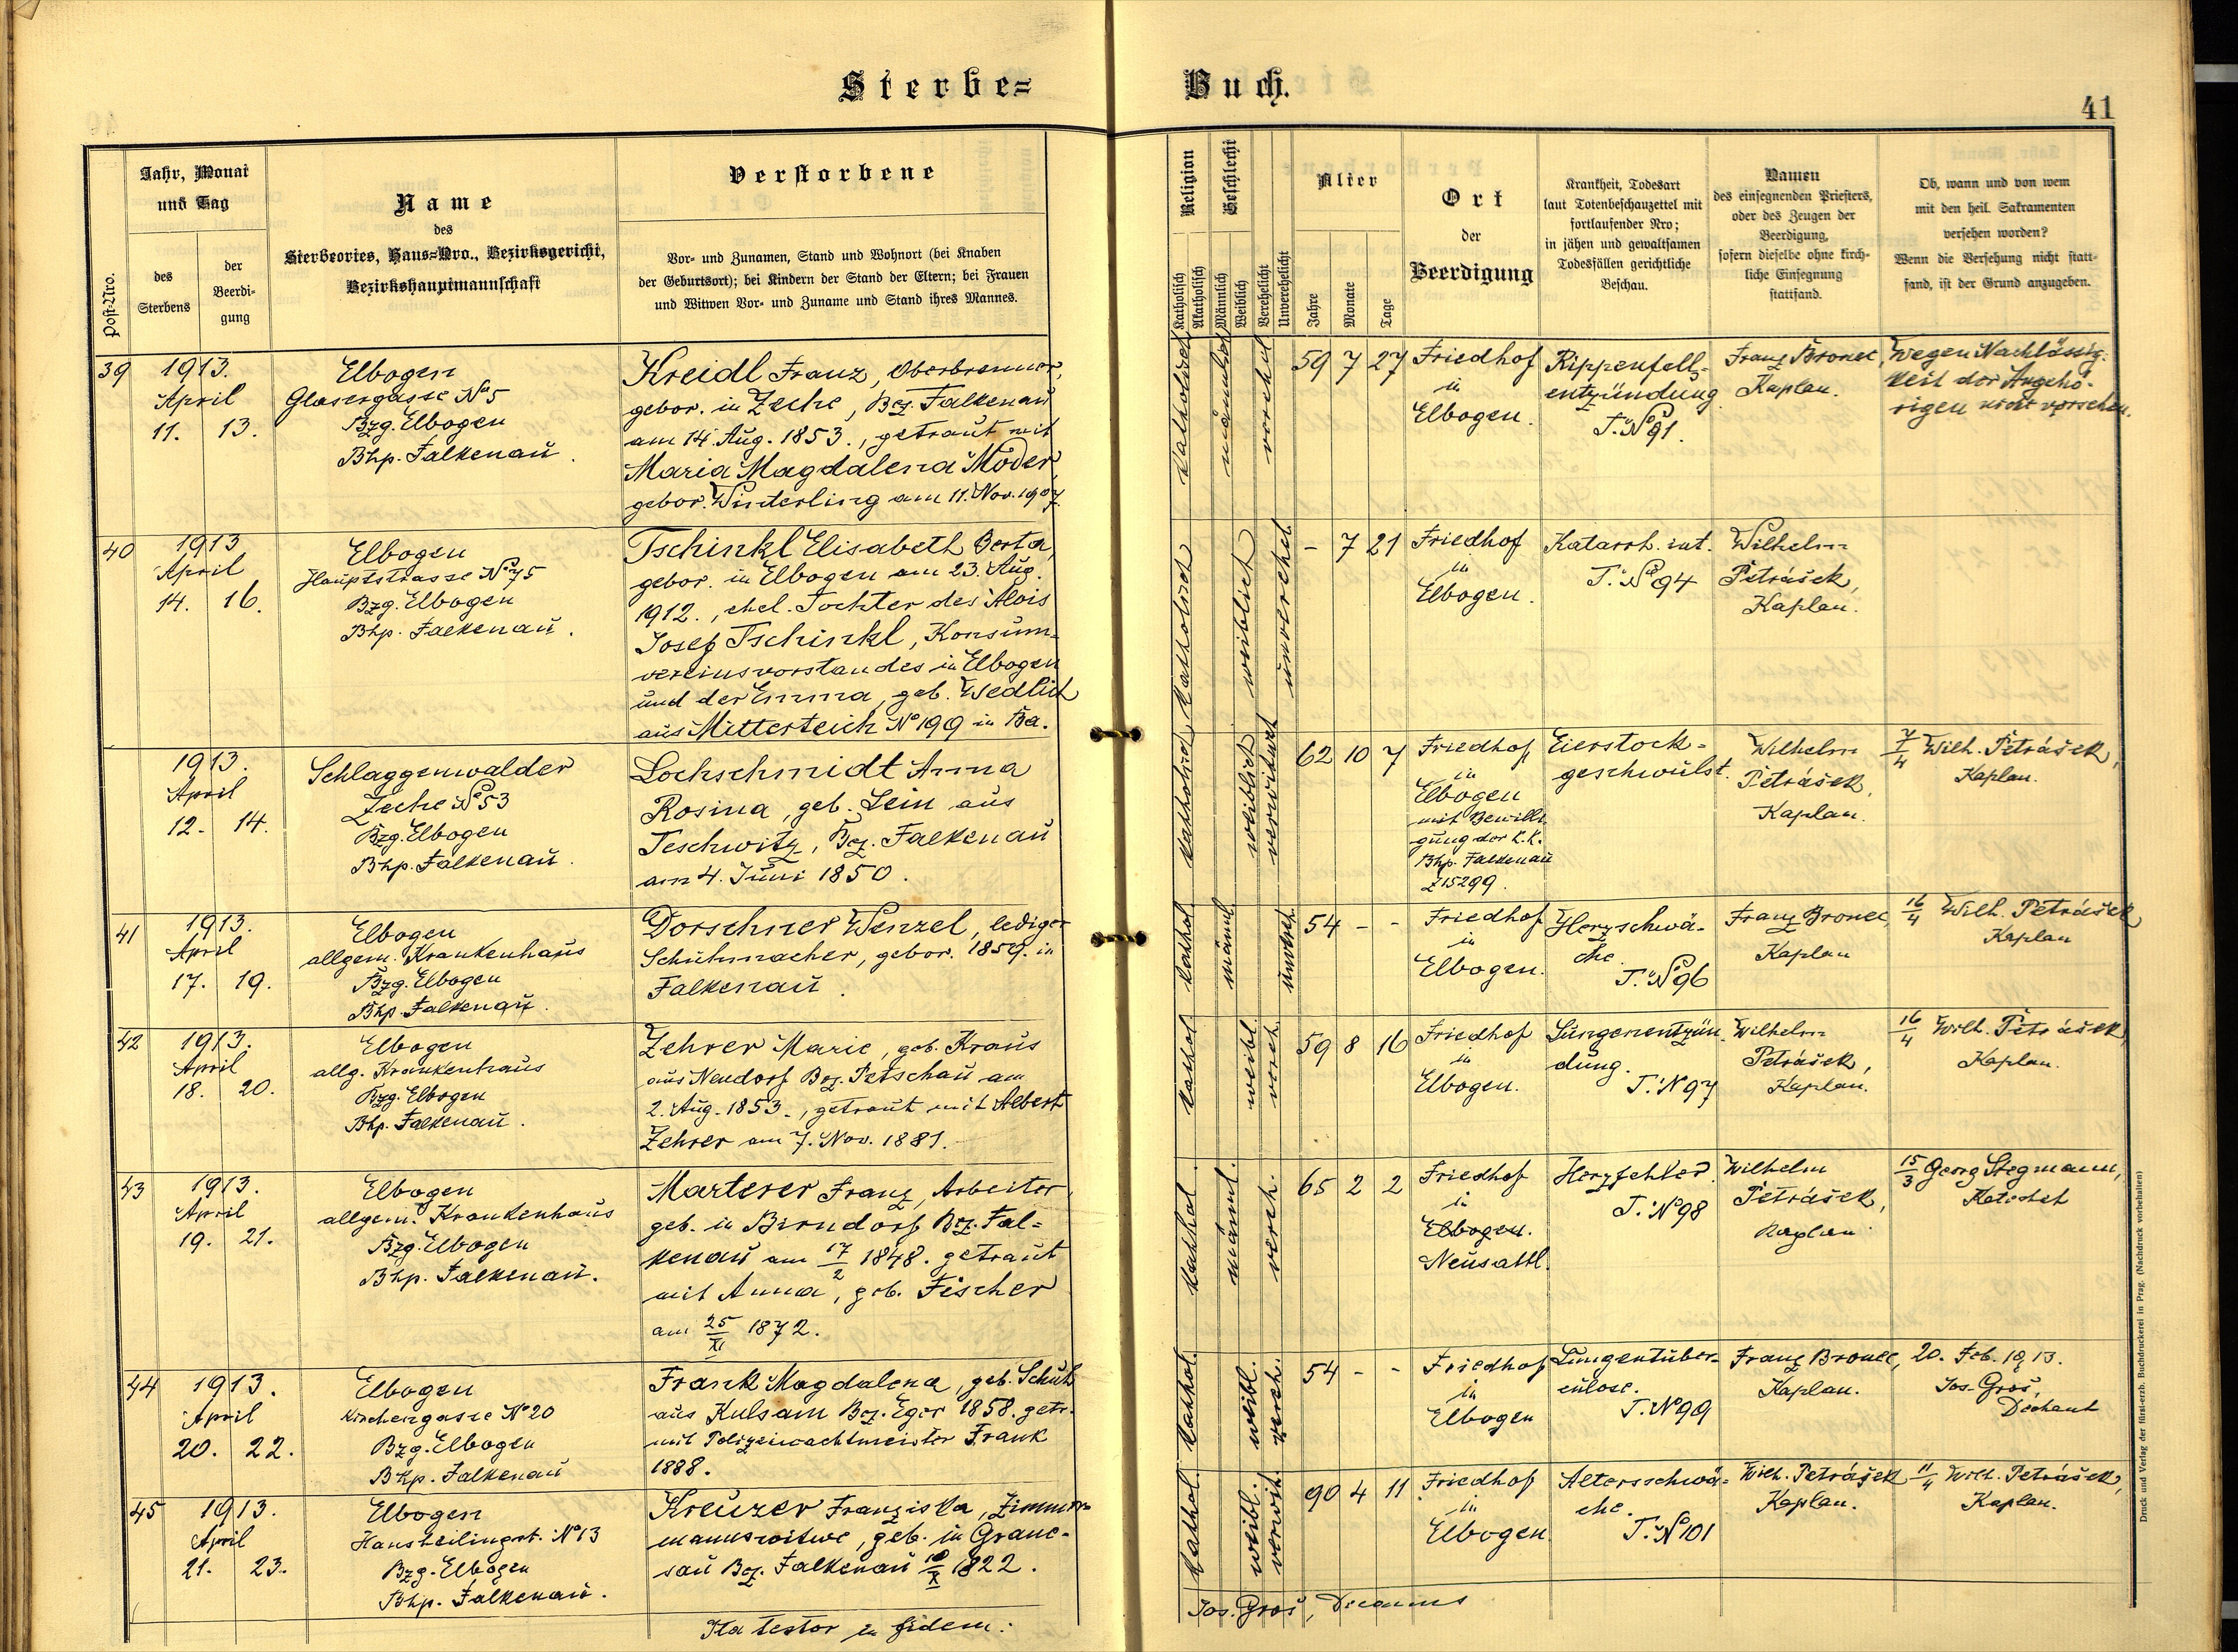 Sterbe=
Buch.
41
Post-Nro.
Jahr, Monat
und Tag
des
Sterbens
der
Beerdi-
gung
Name
des
Sterbeortes, Haus=Nro., Bezirksgericht,
Bezirkshauptmannschaft
Verstorbene
Vor- und Zunamen, Stand und Wohnort (bei Knaben
der Geburtsort); bei Kindern der Stand der Eltern; bei Frauen
und Witwen Vor- und Zuname und Stand ihres Mannes.
Religion
Katholisch
Akatholisch
Geschlecht
Männlich
Weiblich
Verehelicht
Unverehelicht
Alter
Jahre
Monate
Tage
Ort
der
Beerdigung
Krankheit, Todesart
laut Totenbeschauzettel mit
fortlaufender Nro;
in jähen und gewaltsamen
Todesfällen gerichtliche
Beschau.
Namen
des einsegnenden Priesters,
oder des Zeugen der
Beerdigung,
sofern dieselbe ohne kirch-
liche Einsegnung
stattfand.
Ob, wann und von wem
mit den heil. Sakramenten
versehen worden?
Wenn die Versehung nicht statt-
fand, ist der Grund anzugeben.
39
1913.
April
11. 13.
Elbogen
Glasergasse No 5
Bzg. Elbogen
Bhp. Falkenau.
Kreidl Franz, Oberbrenner,
gebor. in Zeche, Bez. Falkenau
am 14. Aug. 1853., getraut mit
Maria Magdalena Moder
gebor. Winterling am 11. Nov. 1907.
katholisch
männlich
verehel
59 7 27
Friedhof
in
Elbogen.
Rippenfell-
entzündung
T. No 91.
Franz Bronec,
Kaplan.
Wegen Nachlässig-
keit der Angehö-
rigen nicht versehen.
40
1913
April
14. 16.
Elbogen
Hauptstrasse No 75
Bzg. Elbogen
Bhp. Falkenau.
Tschinkl Elisabeth Berta,
gebor. in Elbogen am 23. Aug.
1912., ehel. Tochter des Alois
Josef Tschinkl, Konsum-
vereinsvorstandes in Elbogen
und der Emma, geb. Wedlich
aus Mitterteich No 199 in Ba.
katholisch
weiblich
unverehel
- 7 21
Friedhof
in
Elbogen.
Katarrh. int.
T. No 94
Wilhelm
Petrášek,
Kaplan.
1913.
April
12. 14.
Schlaggenwalder
Zeche No 53
Bzg. Elbogen
Bhp. Falkenau.
Lochschmidt Anna
Rosina, geb. Lein aus
Teschwitz, Bez. Falkenau
am 4. Juni 1850.
katholisch
weiblich
verwitwet
62 10 7
Friedhof
in
Elbogen
mit Bewilli-
gung der k.k.
Bhp. Falkenau
Z 15299.
Eierstock-
geschwulst.
Wilhelm
Petrášek,
Kaplan.
7/4 Wilh. Petrášek,
Kaplan.
41
1913.
April
17. 19.
Elbogen
allgem. Krankenhaus
Bzg. Elbogen
Bhp. Falkenau.
Dorschner Wenzel, lediger
Schuhmacher, gebor. 1859. in
Falkenau.
kathol.
männl.
unvereh.
54 - -
Friedhof
in
Elbogen.
Herzschwä-
che.
T. No 96
Franz Bronec,
Kaplan
16/4 Wilh. Petrášek,
Kaplan
42
1913.
April
18. 20.
Elbogen
allg. Krankenhaus
Bzg. Elbogen
Bhp. Falkenau.
Zehrer Marie, geb. Kraus
aus Neudorf Bez. Petschau am
2. Aug. 1853., getraut mit Albert
Zehrer am 7. Nov. 1881.
kathol.
weibl.
vereh.
59 8 16
Friedhof
in
Elbogen.
Lungenentzün
dung.
T. No 97
Wilhelm
Petrášek,
Kaplan.
16/4 Wilh. Petrášek,
Kaplan.
43
1913.
April
19. 21.
Elbogen
allgem. Krankenhaus
Bzg. Elbogen
Bhp. Falkenau.
Marterer Franz, Arbeiter,
geb. in Birndorf Bez. Fal=
kenau am 17/2 1848. getraut
mit Anna, geb. Fischer
am 25/XI 1872.
kathol.
männl.
vereh.
65 2 2
Friedhof
in
Elbogen.
Neusattl.
Herzfehler.
T. No 98
Wilhelm
Petrášek,
Kaplan
15/3 Georg Stegmann,
Katechet
44
1913.
April
20. 22.
Elbogen
Kirchengasse No 20
Bzg. Elbogen
Bhp. Falkenau
Frank Magdalena, geb. Schuh
aus Kulsam Bez. Eger 1858. getr.
mit Polizeiwachtmeister Frank
1888.
kathol.
weibl.
vereh.
54 - -
Friedhof
in
Elbogen
Lungentuber-
culose.
T. No 99
Franz Bronec,
Kaplan.
20. Feb. 1913.
Jos. Groš,
Dechant
45
1913.
April
21. 23.
Elbogen
Hansheilingst. No 13
Bzg. Elbogen
Bhp. Falkenau.
Kreuzer Franziska, Zimmer-
mannswitwe, geb. in Grane-
sau Bez. Falkenau 10/X 1822.
kathol.
weibl.
verwit.
90 4 11
Friedhof
in
Elbogen
Altersschwä-
che.
T. No 101
Wilh. Petrášek
Kaplan.
11/4 Wilh. Petrášek,
Kaplan.
Ita testor in fidem:
Jos. Groš, Decanus
Druck und Verlag der fürst-erzb. Buchdruckerei in Prag. (Nachdruck vorbehalten)